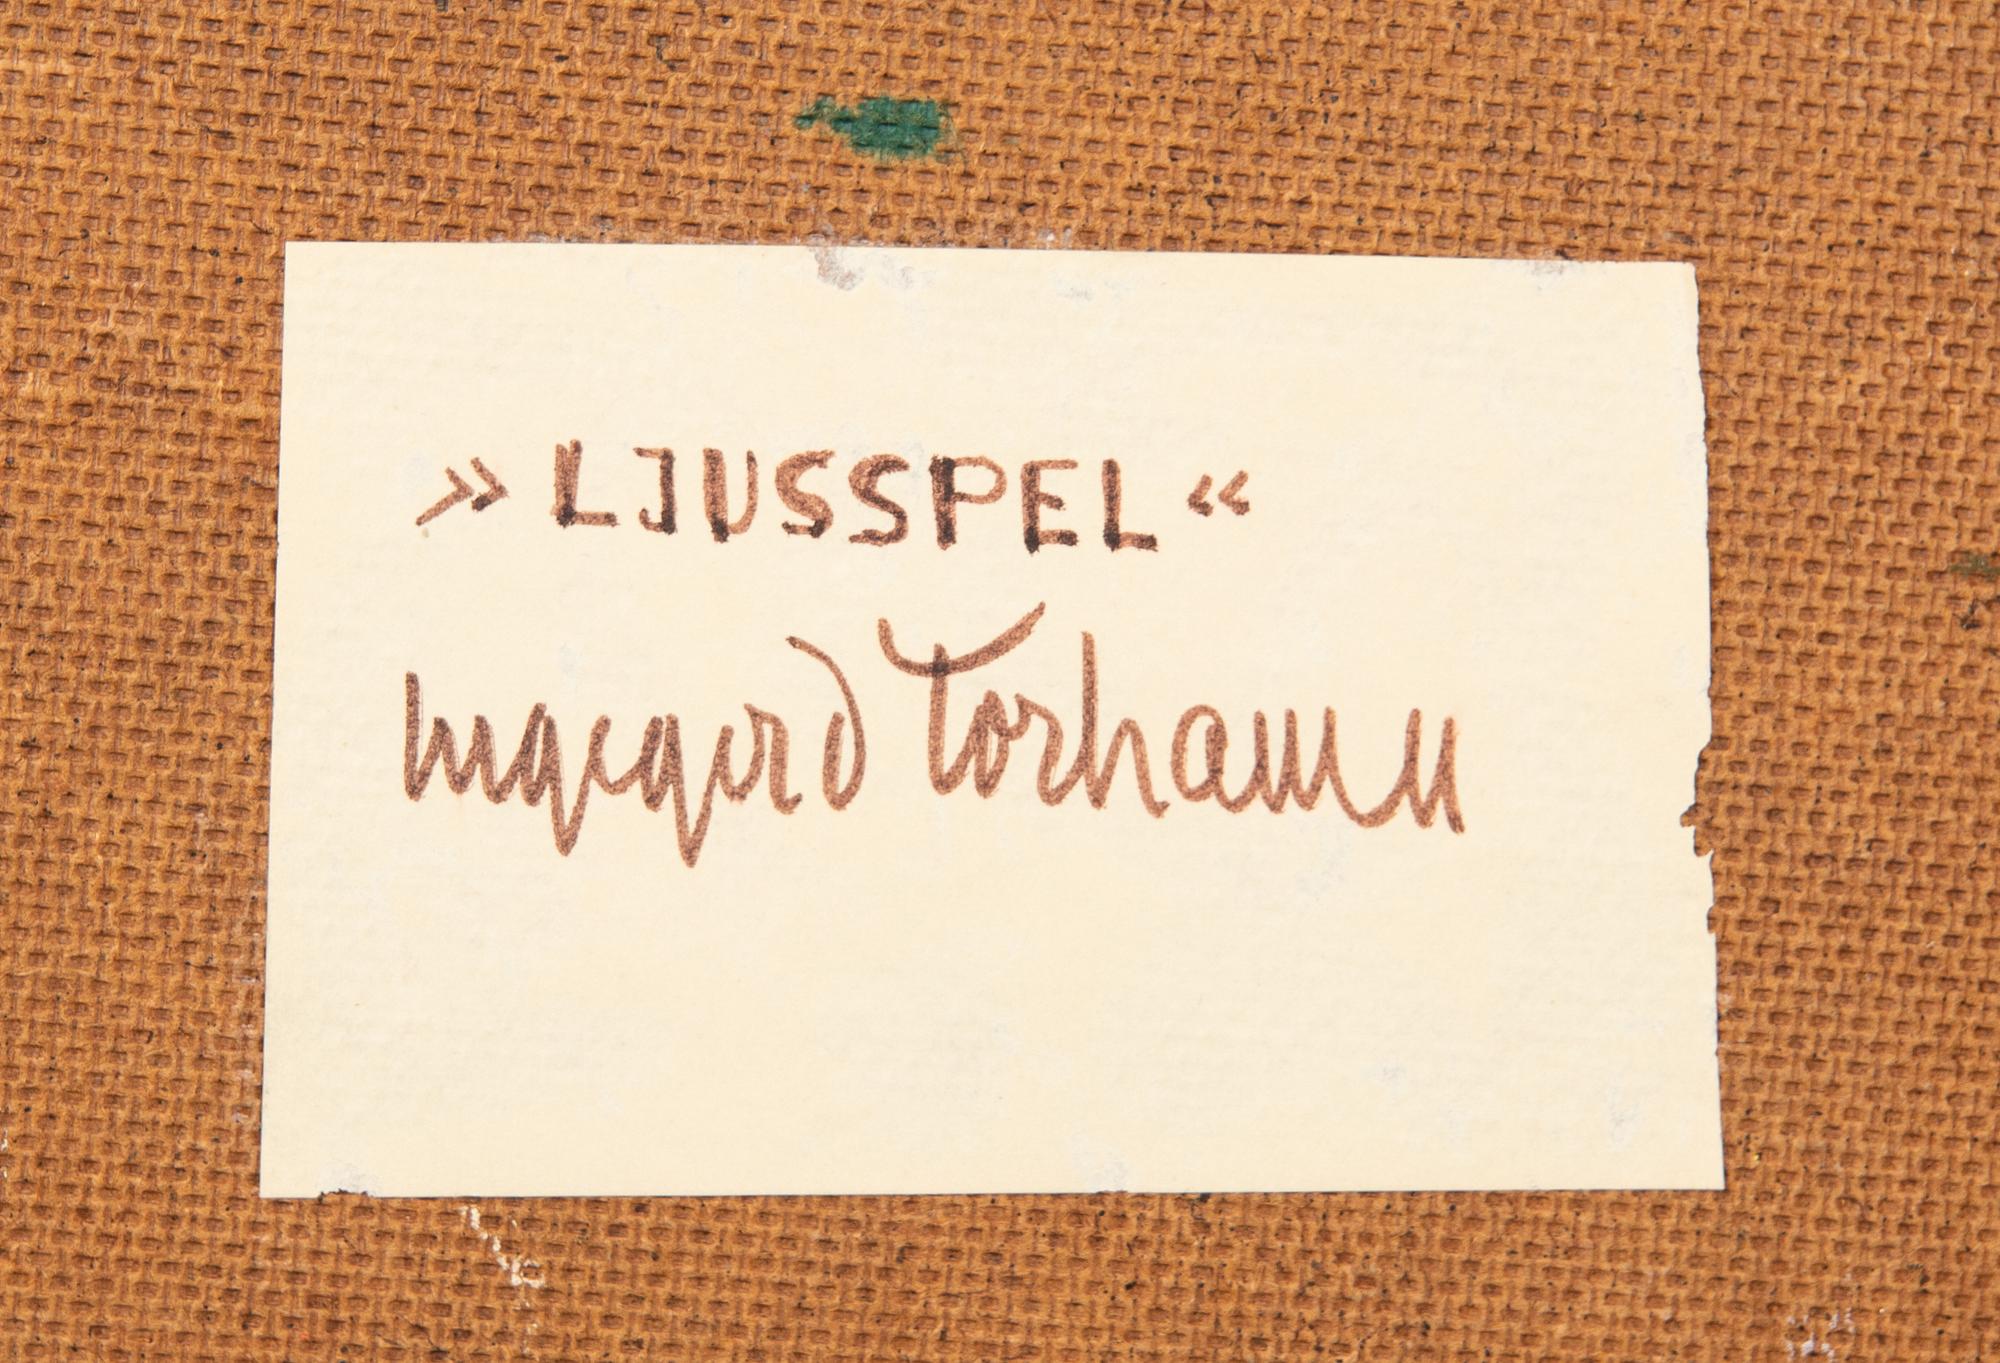 » LJUSSPEL «
Ingegerd Torhamn